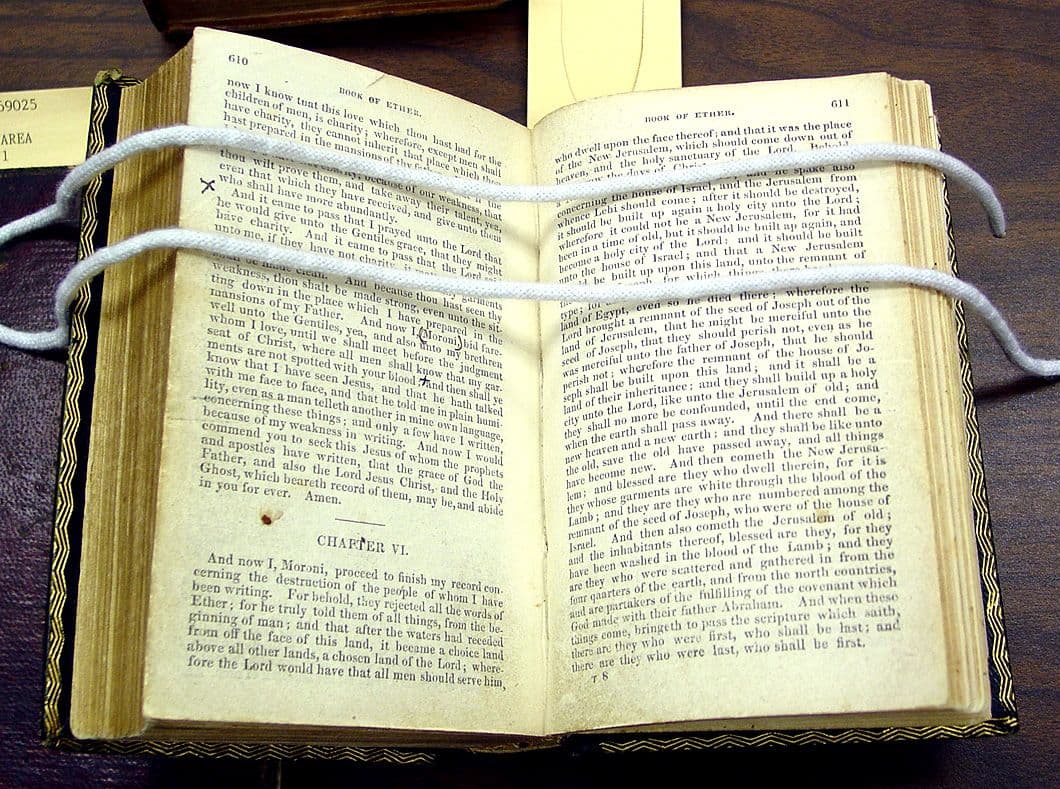 69025
AREA
1
610
BOOK OF ETHER.
now I know that this love which thou hast had for the
children of men, is charity; wherefore, except men shall
have charity, they cannot inherit that place which thou
hast prepared in the mansions of thy
because of our weakness, that
thou wilt prove them, and take away their talent, yea,
even that which they have received, and give unto them
who shall have more abundantly.
And it came to pass that I prayed unto the Lord that
he would give unto the Gentiles grace, that they might
have charity. And it came to pass that the Lord
unto me, if they have not charity, it
shall be made clean. And because thou hast seen thy
weakness, thou shall be made strong, even unto the sit-
ting down in the place which I have prepared in the
mansions of my Father. And now I, Moroni, bid fare-
well unto the Gentiles, yea, and also unto my brethren
whom I love, until we shall meet before the judgment
seat of Christ, where all men shall know that my gar-
ments are not spotted with your blood. And then shall ye
know that I have seen Jesus, and that he hath talked
with me face to face, and that he told me in plain humi-
lity, even as a man telleth another in mine own language,
concerning these things; and only a few have I written,
because of my weakness in writing. And now I would
commend you to seek this Jesus of whom the prophets
and apostles have written, that the grace of God the
Father, and also the Lord Jesus Christ, and the Holy
Ghost, which beareth record of them, may be, and abide
in you for ever. Amen.
CHAPTER VI.
And now I, Moroni, proceed to finish my record con-
cerning the destruction of the people of whom I have
been writing. For behold, they rejected all the words of
Ether; for he truly told them of all things, from the be-
ginning of man; and that after the waters had receded
from off the face of this land, it became a choice land
above all other lands, a chosen land of the Lord; where-
fore the Lord would have that all men should serve him,
BOOK OF ETHER.
611
who dwell upon the face thereof; and that it was the place
of the New Jerusalem, which should come down out of
heaven, and the holy sanctuary of the Lord. Behold,
the days of
and he spake also
concerning the house of Israel, and the Jerusalem from
whence Lehi should come; after it should be destroyed,
it should be built up again a holy city unto the Lord;
wherefore it could not be a New Jerusalem, for it had
been in a time of old, but it should be built up again, and
become a holy city of the Lord; and it should be built
unto the house of Israel; and that a New Jerusalem
should be built up upon this land, unto the remnant of
for which things
type; for
land of Egypt, even so he died there; wherefore the
Lord brought a remnant of the seed of Joseph out of the
land of Jerusalem, that he might be merciful unto the
seed of Joseph, that they should perish not, even as he
was merciful unto the father of Joseph, that he should
perish not; wherefore the remnant of the house of Jo-
seph shall be built upon this land; and it shall be a
land of their inheritance; and they shall build up a holy
city unto the Lord, like unto the Jerusalem of old; and
they shall no more be confounded, until the end come,
when the earth shall pass away. And there shall be a
new heaven and a new earth; and they shall be like unto
the old, save the old have passed away, and all things
have become new. And then cometh the New Jerusa-
lem; and blessed are they who dwell therein, for it is
they whose garments are white through the blood of the
Lamb; and they are they who are numbered among the
remnant of the seed of Joseph, who were of the house of
Israel. And then also cometh the Jerusalem of old;
and the inhabitants thereof, blessed are they, for they
have been washed in the blood of the Lamb; and they
are they who were scattered and gathered in from the
four quarters of the earth, and from the north countries,
and are partakers of the fulfilling of the covenant which
God made with their father Abraham. And when these
things come, bringeth to pass the scripture which saith,
there are they who were first, who shall be last; and
there are they who were last, who shall be first.
T 8